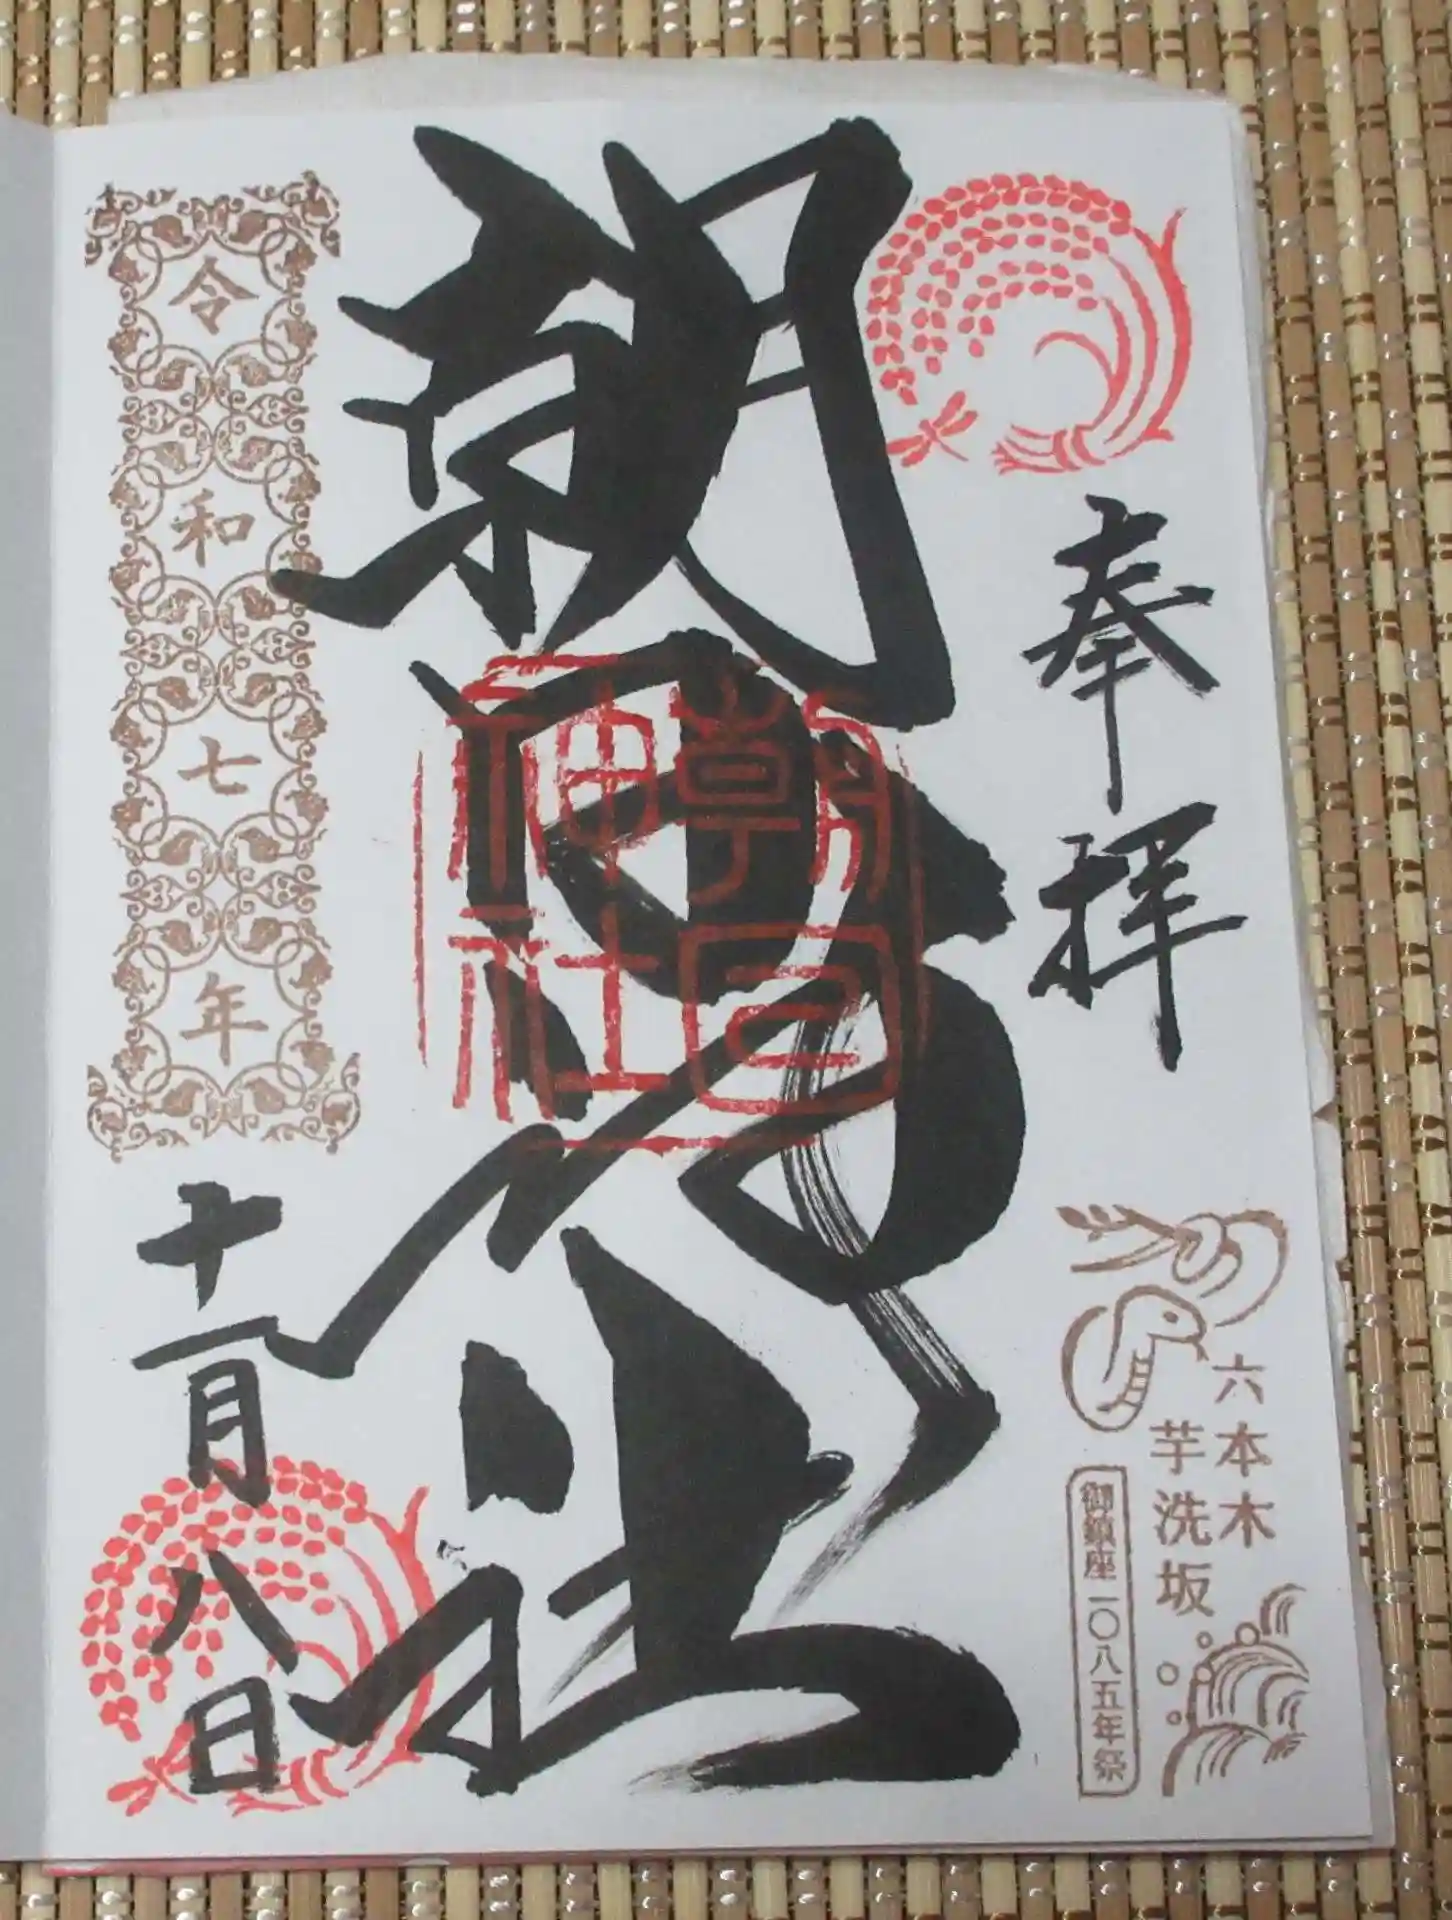 奉拝
六本木
芋洗坂
御鎮座一〇八五年祭
朝日神社
朝日
神社
令和七年
十一月八日